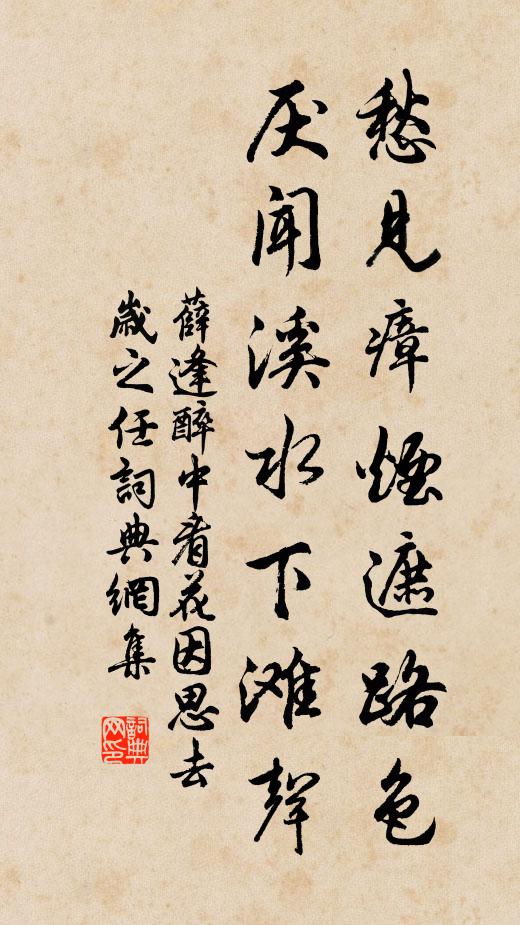 愁見瘴煙遮路色
厌聞溪水下滩聲
薛逢醉中看花因思去
歲之任詞典網集
詞典网印